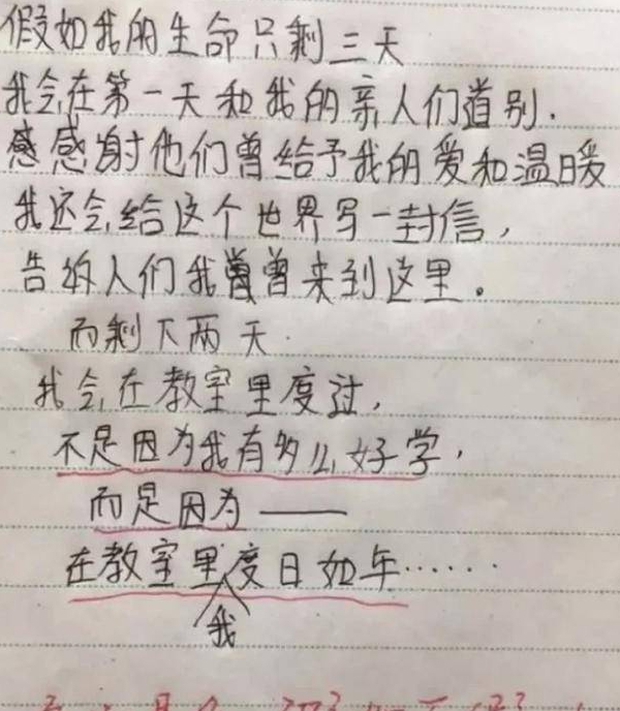 假如我的生命只剩三天
我会在第一天和我的亲人们道别.
感感谢他们曾给予我的爱和温暖
我还会给这个世界写一封信,
告诉人们我曾曾来到这里。
而剩下两天
我会在教室里度过,
不是因为我有多么好学,
而是因为——
在教室里我度日如年……